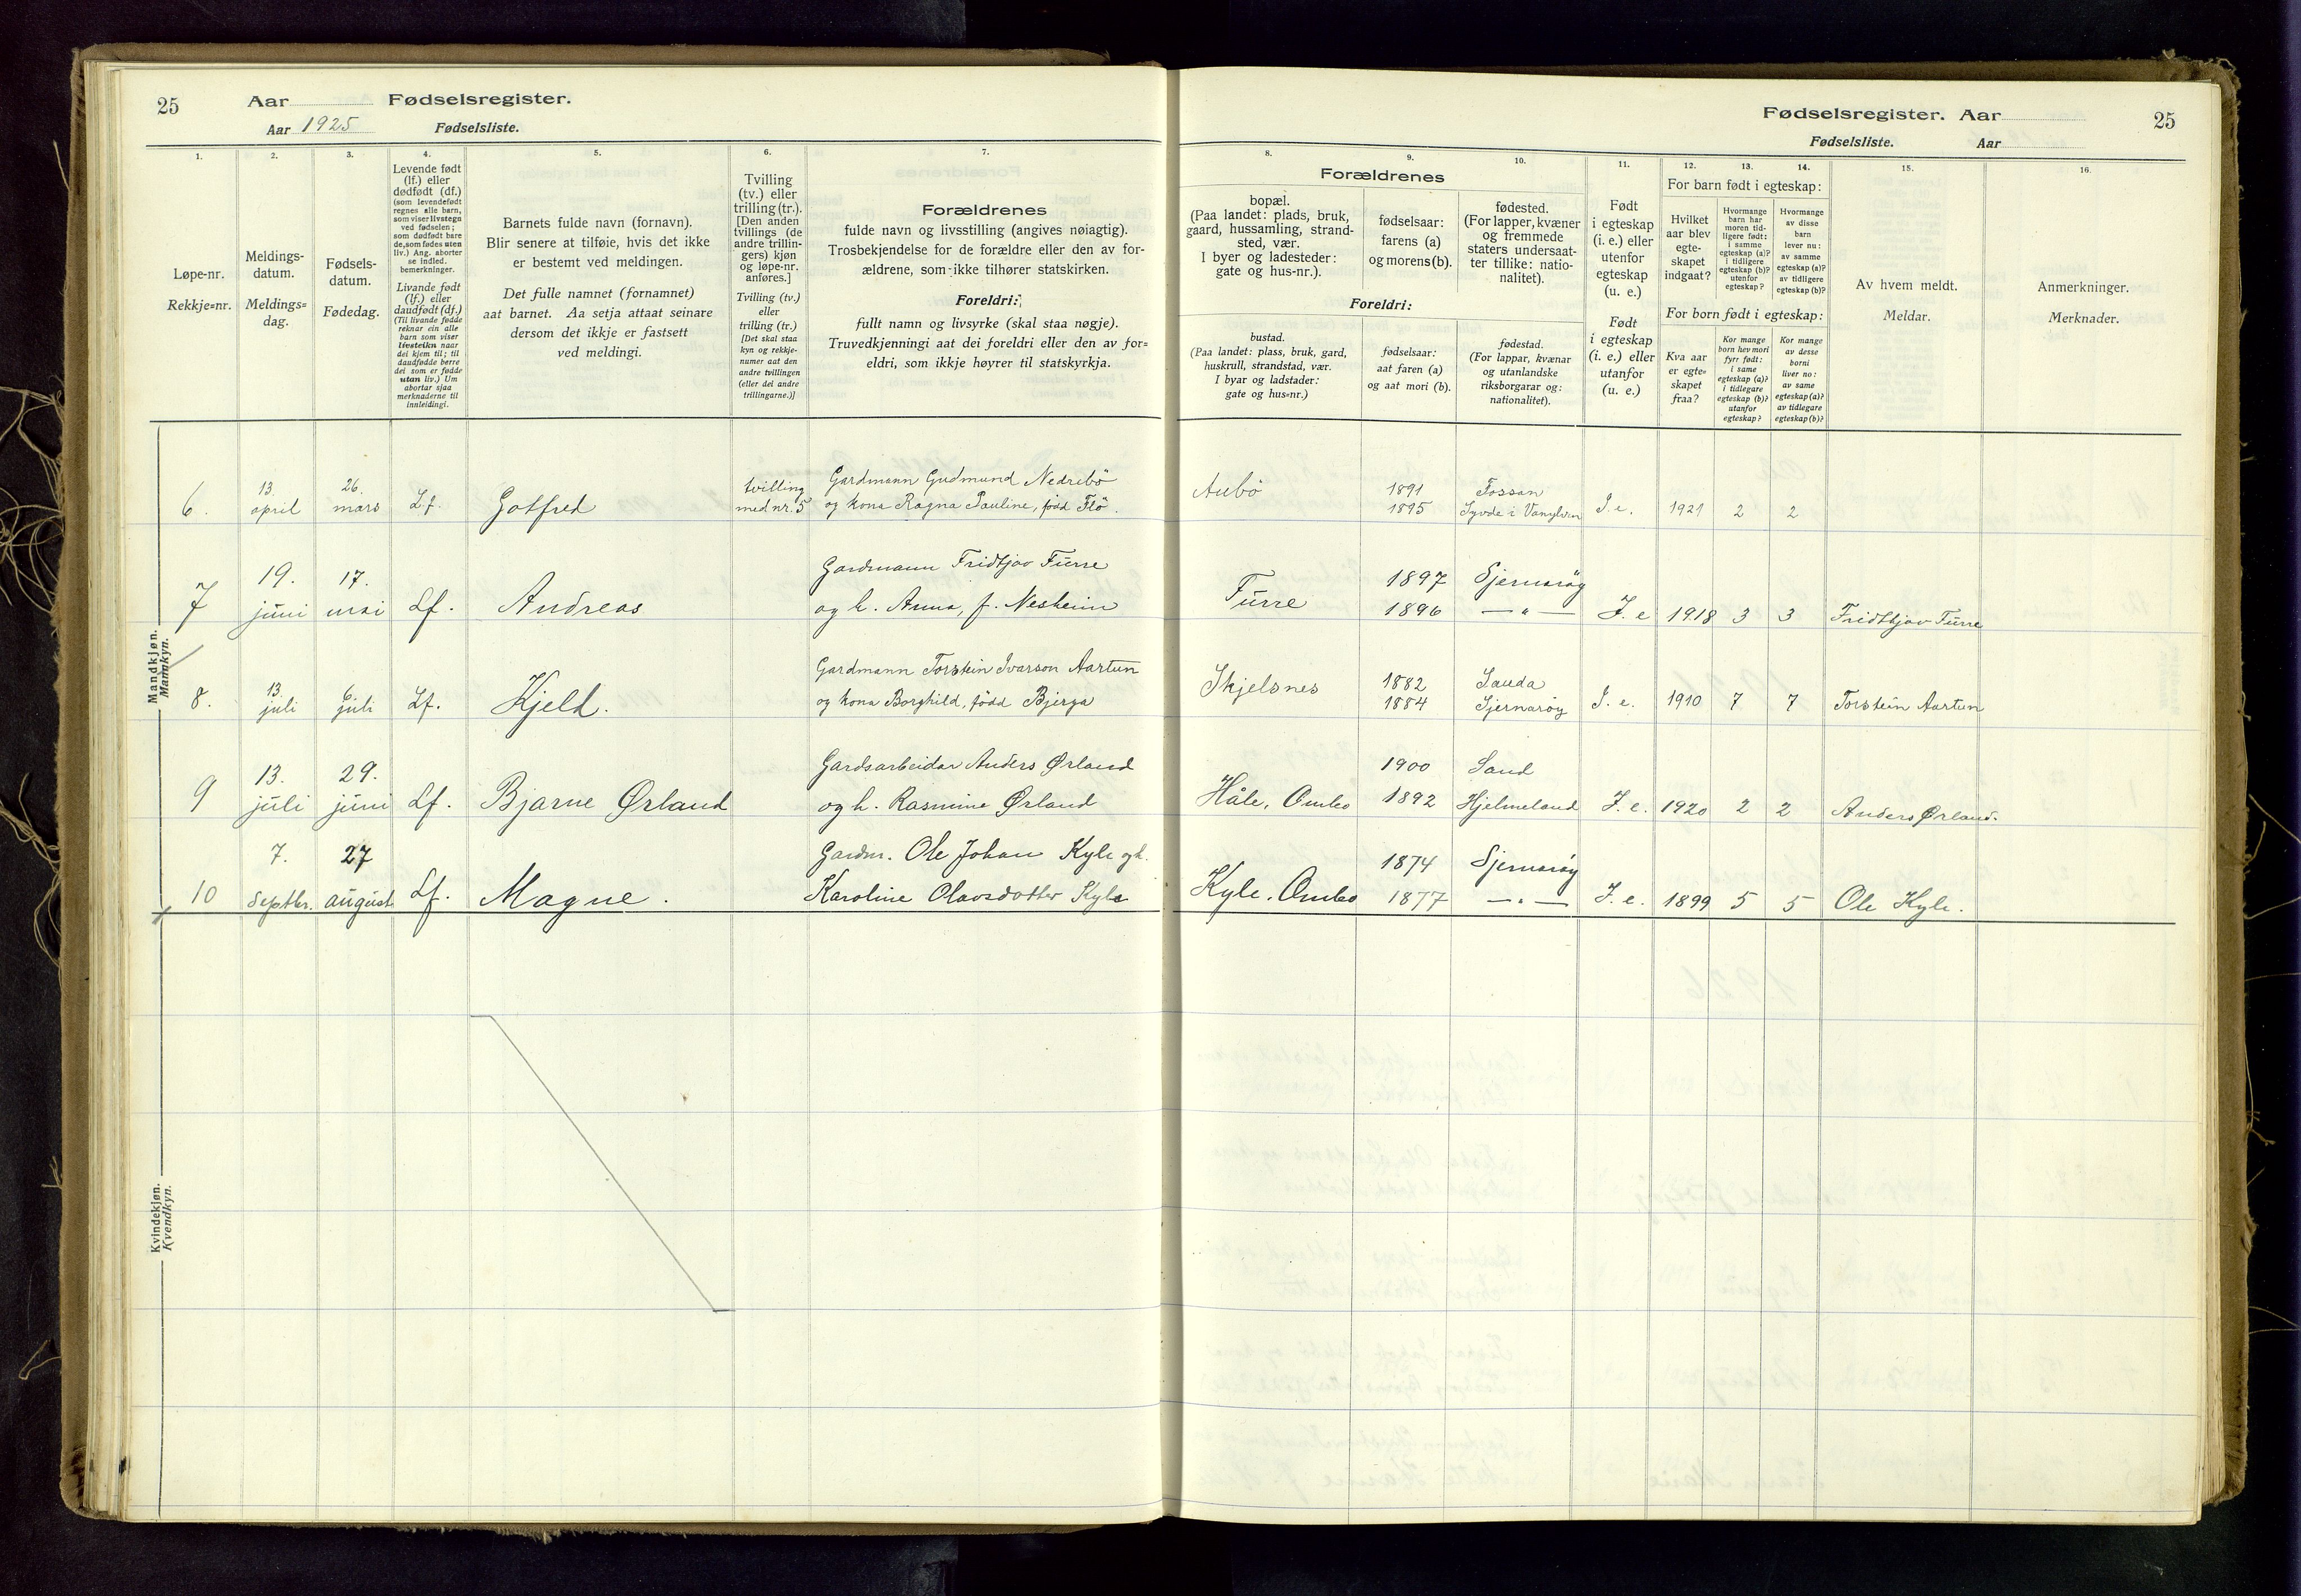 25 Aar Fødselsregister.
Aar 1925 Fødselsliste.
1.
Løpe-nr.
Rekkje=nr.
2.
Meldings-
datum.
Meldings=
dag.
3.
Fødsels-
datum.
Fødedag.
4.
Levende født
(lf.) eller
dødfødt (df.)
(som levendefødt
regnes alle barn,
som viser livstegn
ved fødselen;
som dødfødt bare
de, som fødes uten
liv.) Ang. aborter
se indled.
bemerkninger.
Livande født
(lf.) eller
daudfødt (df.)
(Til livande fødde
reknar ein alle
barn som viser
livsteikn naar
dei kjem til; til
daudfødde berre
dei som er fødde
utan liv.) Um
abortar sjaa
merknaderne til
innleidingi.
5.
Barnets fulde navn (fornavn).
Blir senere at tilføie, hvis det ikke
er bestemt ved meldingen.
Det fulle namnet (fornamnet)
aat barnet. Aa setja attaat seinare
dersom det ikkje er fastsett
ved meldingi.
6.
Tvilling
(tv.) eller
trilling (tr.).
[Den anden
tvillings (de
andre trillin-
gers) kjøn
og løpe-nr.
anføres.]
Tvilling (tv.)
eller
trilling (tr.)
[Det skal staa
kyn og rekkje-
numer aat den
andre tvillingen
(eller dei andre
trillingarne.)]
7.
Forældrenes
fulde navn og livsstilling (angives nøiagtig).
Trosbekjendelse for de forældre eller den av for-
ældrene, som ikke tilhører statskirken.
Foreldri:
fullt namn og livsyrke (skal staa nøgje).
Truvedkjenningi aat dei foreldri eller den av for=
eldri, som ikkje høyrer til statskyrkja.
Fødselsregister. Aar 25
Fødselsliste. Aar
8.
Forældrenes
bopæl.
(Paa landet: plads, bruk,
gaard, hussamling, strand-
sted, vær.
I byer og ladesteder:
gate og hus-nr.).
Foreldri:
bustad.
(Paa landet: plass, bruk, gard,
huskrull, strandstad, vær.
I byar og ladstader:
gate og hus=nr.)
9.
fødselsaar:
farens (a)
og morens (b).
fødselsaar:
aat faren (a)
og aat mori (b).
10.
fødested.
(For lapper, kvæner
og fremmede
staters undersaat-
ter tillike: natio-
nalitet).
fødestad.
(For lappar, kvænar
og utanlandske
riksborgarar og:
nationalitet).
11.
Født
i egteskap
(i. e.) eller
utenfor
egteskap
(u. e.)
Født
i egteskap
(i. e.) eller
utanfor
(u. e.)
12. 13. 14.
For barn født i egteskap:
Hvilket
aar blev
egte-
skapet
indgaat?
Hvormange
barn har
moren tid-
ligere født:
i samme
egteskap (a)?
i tidligere
egteskap (b)?
utenfor
egteskap?
Hvormange
av disse
barn
lever nu:
av samme
egteskap (a)?
av tidligere
egteskap (b)?
For born født i egteskap:
Kva aar
er egte=
skapet
fraa?
Kor mange
born hev mori
fyrr født:
i same
egteskap (a)?
i tidlegare
egteskap (b)?
utanfor
egteskap?
Kor mange
av desse
borni
liver no:
av same
egteskap (a)?
av tidlegare
egteskap (b)?
15.
Av hvem meldt.
Meldar.
16.
Anmerkninger.
Merknader.
Mandkjøn.
Mannkyn.
6. 13. april 26. mars Lf. Gotfred tvilling med nr. 5 Gardmann Gudmund Nedrebö Aubö 1891 Fossan
og kona Ragna Pauline, född Flö. 1895 Syvde i Vanylven I. e. 1921 2 2
7 19. juni 17. mai Lf. Andreas Gardmann Fridtjov Furre Furre 1897 Sjernarøy
og h. Anna, f. Nesheim 1896 — " — I. e 1918 3 3 Fridtjov Furre
8. 13. juli 6. juli Lf. Kjeld. Gardmann Torstein Ivarson Aartun Skjelsnes 1882 Sauda
og kona Borghild, född Bjerga 1884 Sjernaröy I. e. 1910 7 7 Torstein Aartun
9 13. juli 29. juni Lf. Bjarne Ørland Gardsarbeidar Anders Ørland 1900 Sand
og h. Rasmine Ørland Håle, Ombo 1892 Hjelmeland I. e. 1920 2 2 Anders Ørland.
10 7. septbr. 27 august Lf. Magne. Gardm. Ole Johan Kyle og h. 1874 Sjernarøy
Karoline Olavsdotter Kyle Kyle, Ombo 1877 — " — I. e. 1899 5 5 Ole Kyle.
Kvindekjøn.
Kvendkyn.